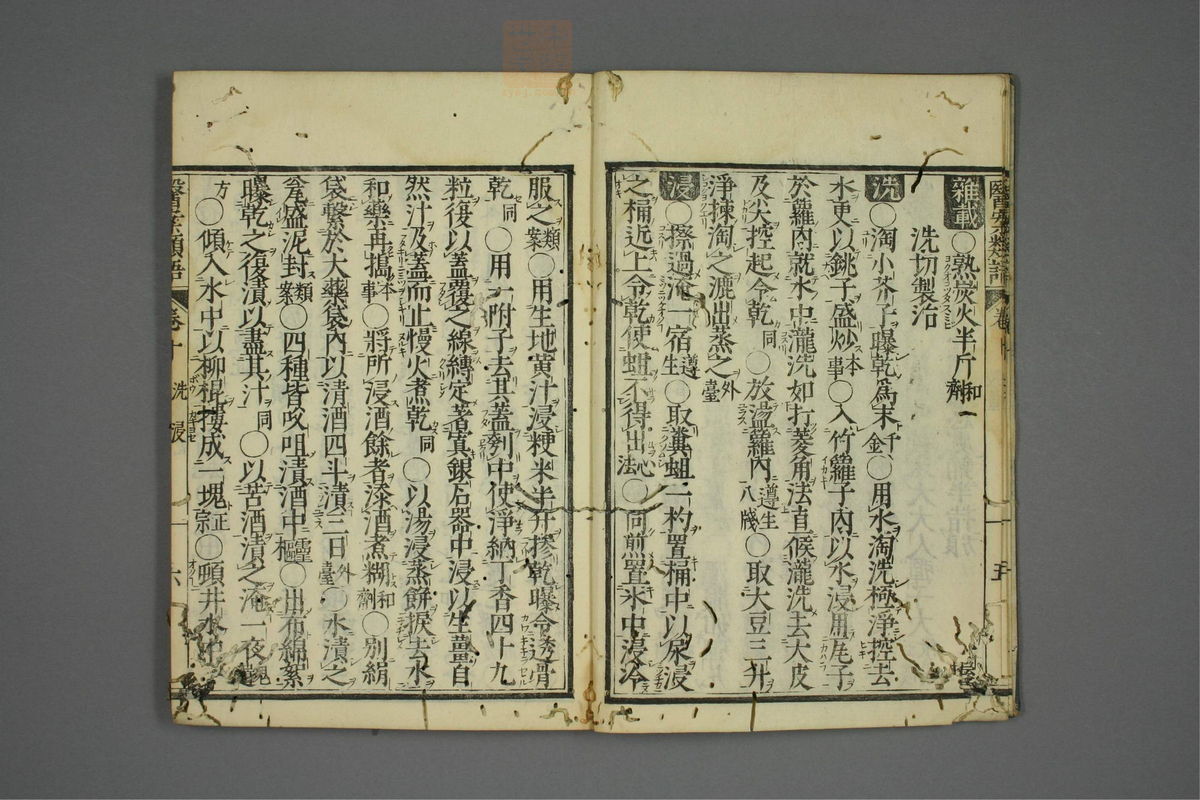 雜載○熟炭火半斤和劑
洗切製治
洗○淘小芥子曝乾爲末千金○用水淘洗極淨控去
水更以銚子盛炒本事○入竹籮子內以水浸用馬尾子
於籮內就水中瀧洗如打菱角法直候瀧洗去大皮
及尖控起令乾同○放湯籮內遵生八牋○取大豆三升
淨揀淘之漉出蒸之外臺
浸○擦過淹一宿遵生○取糞蛆二杓置桶中以尿浸
之桶近上令乾使蛆不得出心法○同煎置水中浸冷
服之類案○用生地黃汁浸粳米半升摻乾曝令透滑
乾同○用一附子去其蓋剜中使淨納丁香四十九
粒復以蓋覆之線縛定著寘銀石器中浸以生薑自
然汁及蓋而止慢火煮乾同○以湯浸蒸餅捩去水
和藥再搗本事○將所浸酒餘者添酒煮糊和劑○別絹
袋繫於大藥袋內以清酒四斗漬三日外臺○水漬之
瓮盛泥封類案○四種皆㕮咀漬酒中靈樞○出布綿絮
曝乾之復漬以盡其汁同○以苦酒漬之淹一夜
方○傾入水中以柳棍摟成一塊正宗○頓井水中
醫案類語
卷十
洗
浸
十六
十五